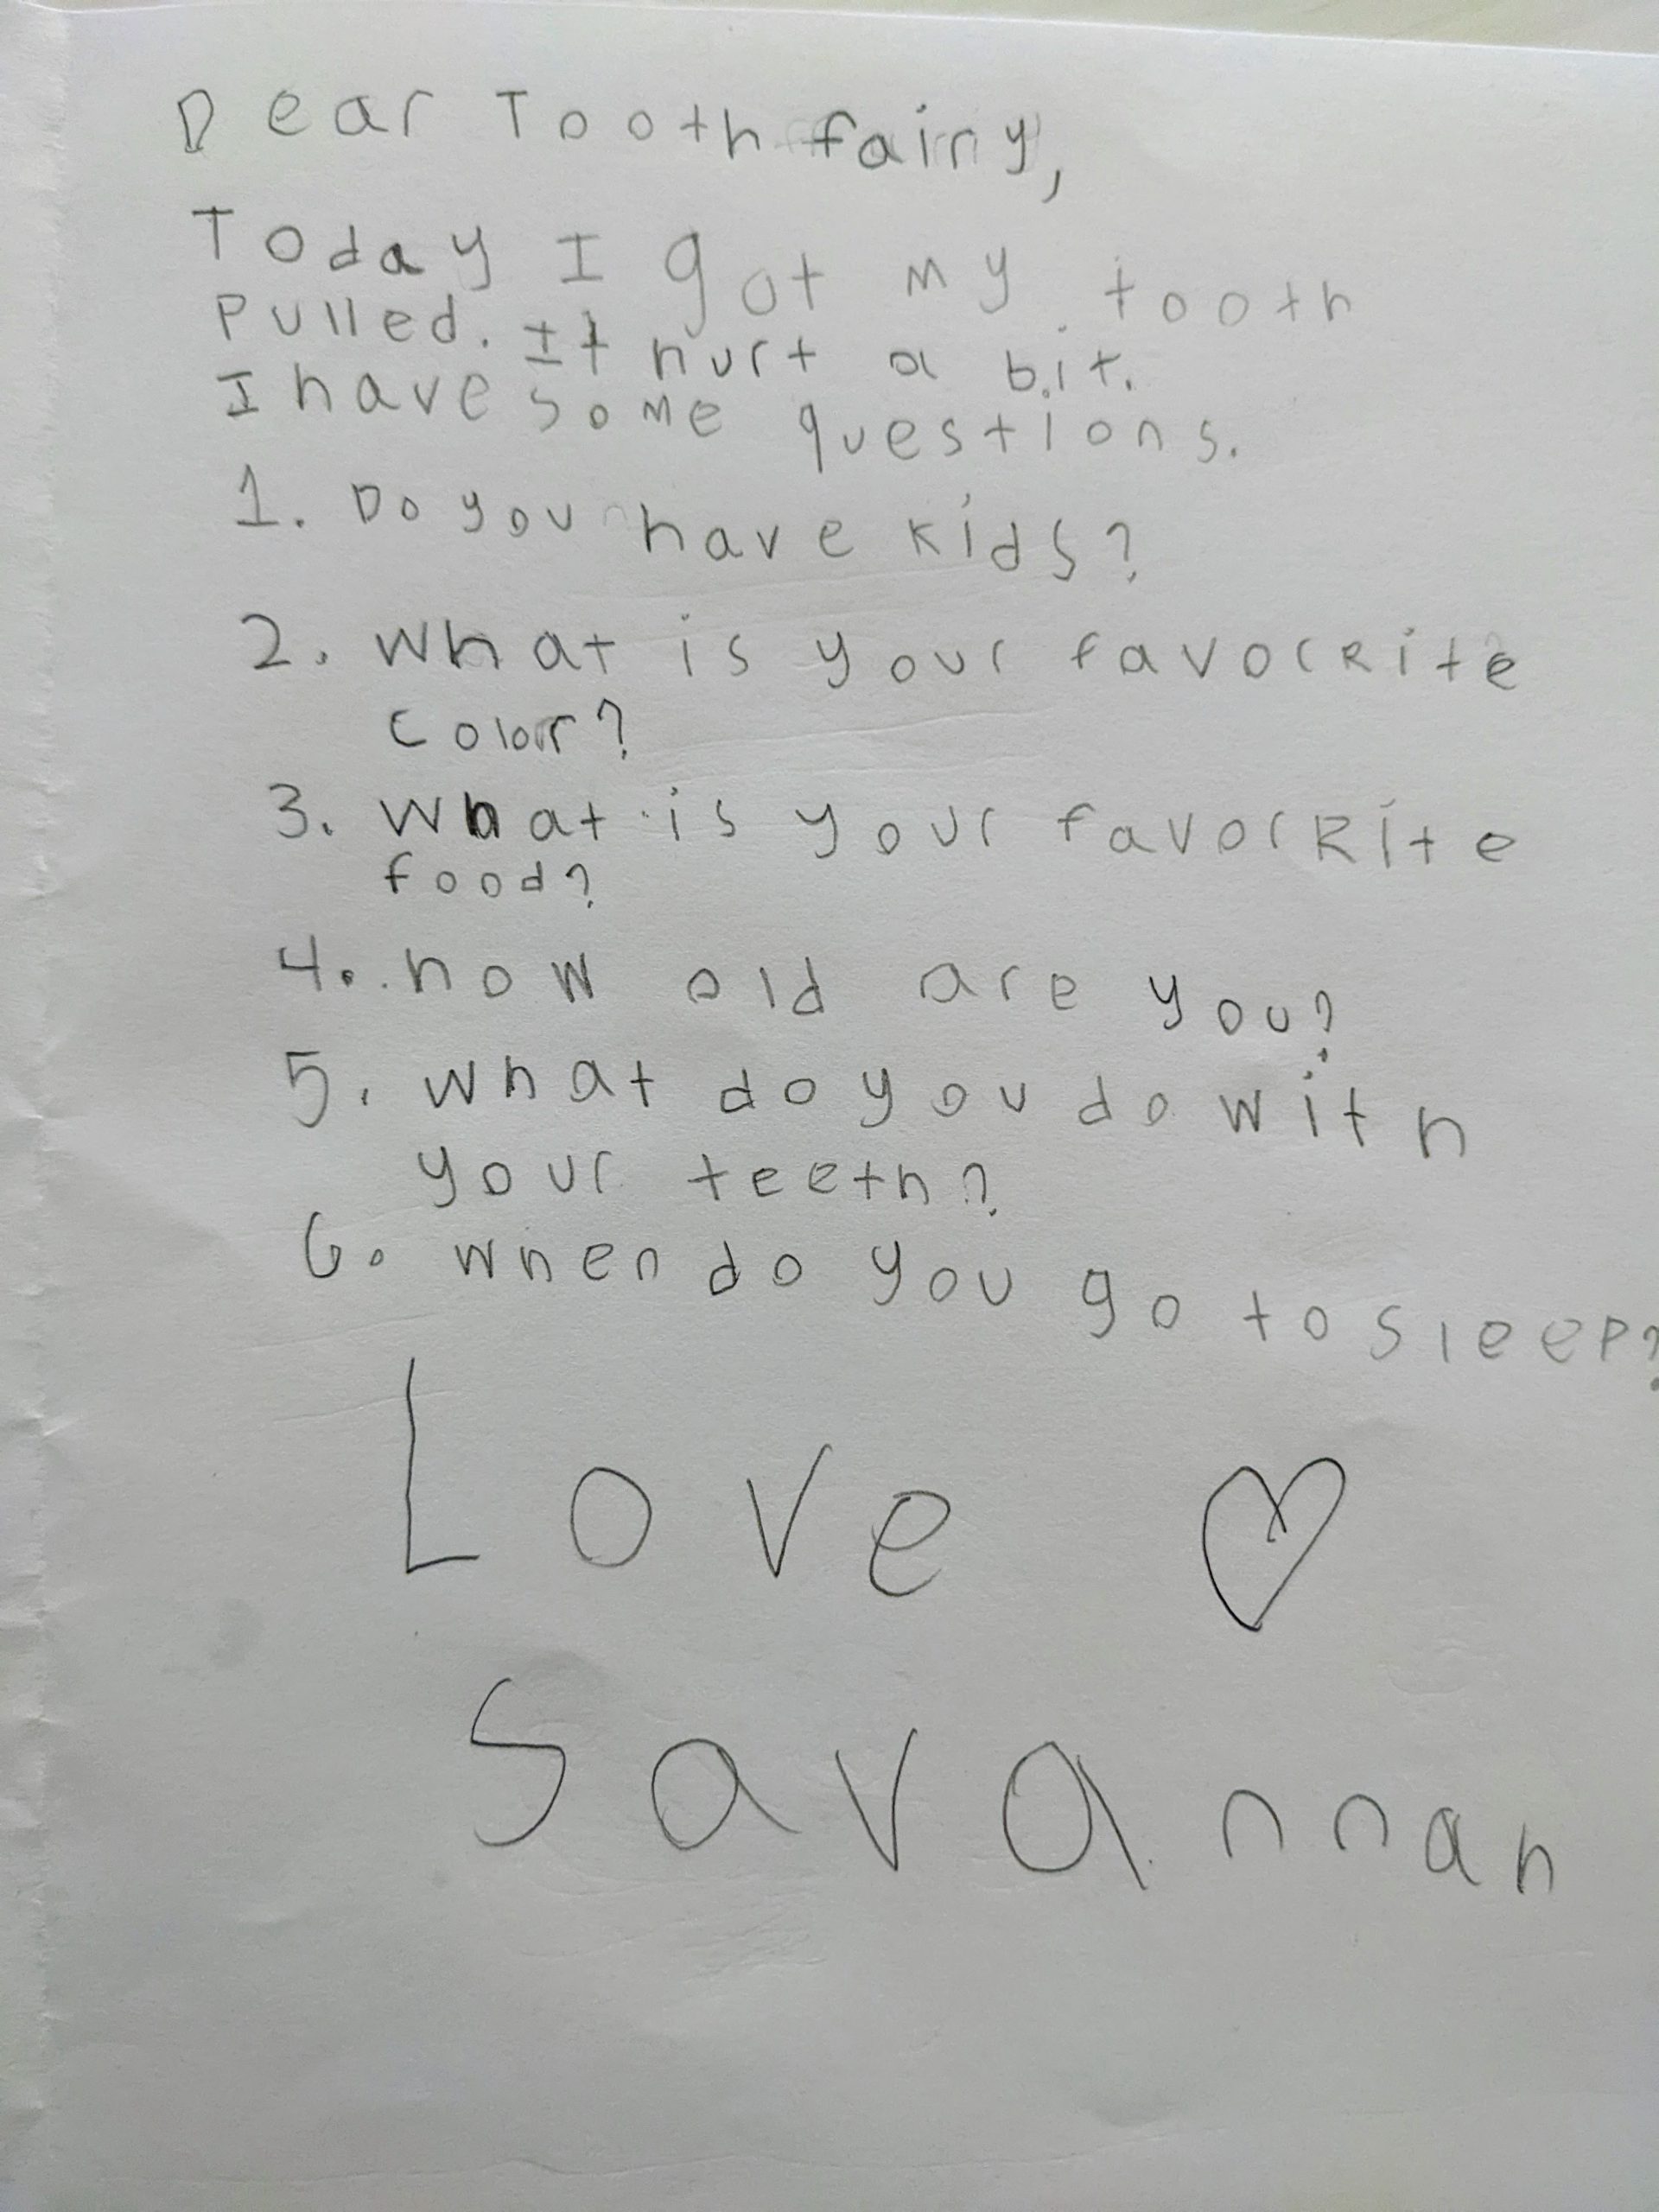 Dear Tooth fairy,
Today I got my tooth
Pulled. It hurt a bit.
I have some questions.
1. Do you have kids?
2. What is your favorRite
color?
3. What is your favorRite
food?
4. how old are you?
5. What do you do with
your teeth?
6. when do you go to sleep?
Love ♡
Savannah